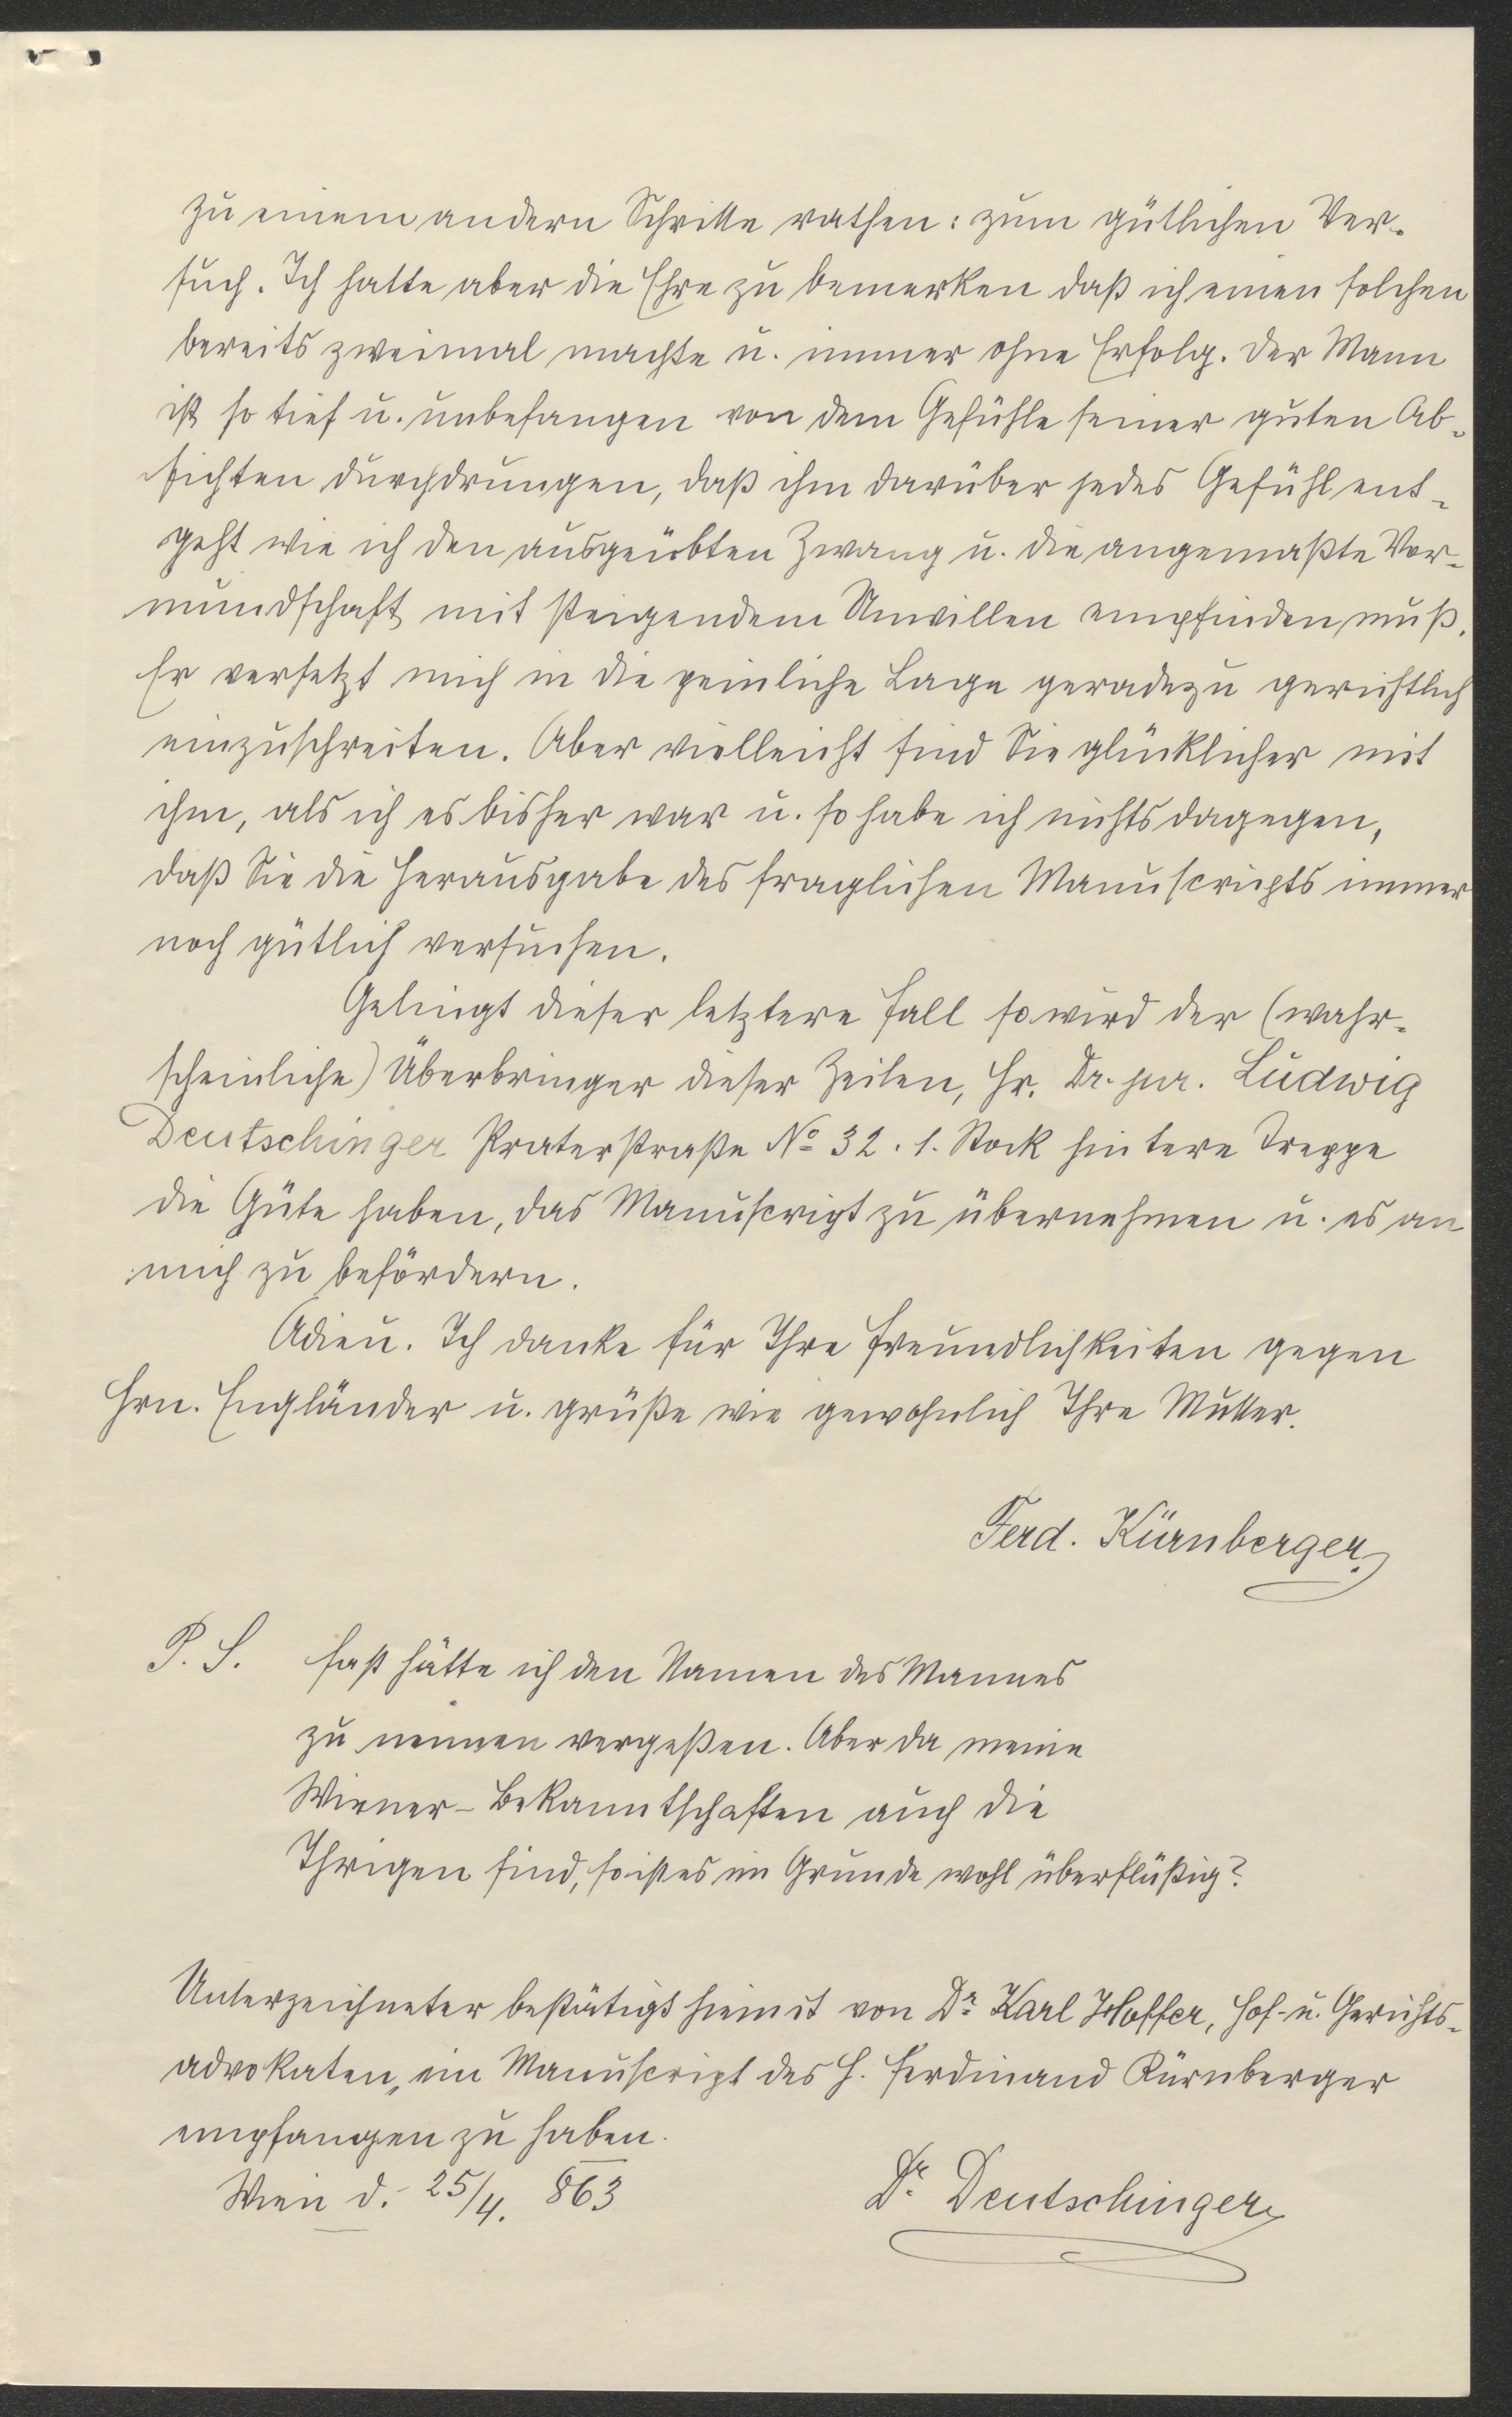 zu einem andern Schritte rathen: zum gütlichen Ver-
such. Ich hatte aber die Ehre zu bemerken daß ich einen solchen
bereits zweimal machte u. immer ohne Erfolg. Der Mann
ist so tief u. unbefangen von dem Gefühle seiner guten Ab-
sichten durchdrungen, daß ihm darüber jedes Gefühl ent-
geht wie ich den ausgeübten Zwang u. die angemaßte Vor-
mundschaft mit steigendem Unwillen empfinden muß.
Er versetzt mich in die peinliche Lage geradezu gerichtlich
einzuschreiten. Aber vielleicht sind Sie glücklicher mit
ihm, als ich es bisher war u. so habe ich nichts dagegen,
daß Sie die Herausgabe des fraglichen Manuscripts immer
noch gütlich versuchen.
Gelingt dieser letztere Fall so wird der (wahr-
scheinliche) Überbringer dieser Zeilen, Hr. Dr. jur. Ludwig
Deutschinger Praterstraße No 32. 1. Stock hintere Treppe
die Güte haben, das Manuscript zu übernehmen u. es an
mich zu befördern.
Adieu. Ich danke für Ihre Freundlichkeiten gegen
Hrn. Engländer u. grüße wie gewohnlich Ihre Mutter.
Ferd. Kürnberger.
P. S. Fast hätte ich den Namen des Mannes
zu nennen vergeßen. Aber da meine
Wiener-Bekanntschaften auch die
Ihrigen sind, so ist es im Grunde wohl überflüßig?
Unterzeichneter bestätigt hiemit von Dr Karl Hoffer, Hof- u. Gerichts-
advokaten, ein Manuscript des H. Ferdinand Kürnberger
empfangen zu haben.
Wien d. 25/4. 863
Dr. Deutschinger